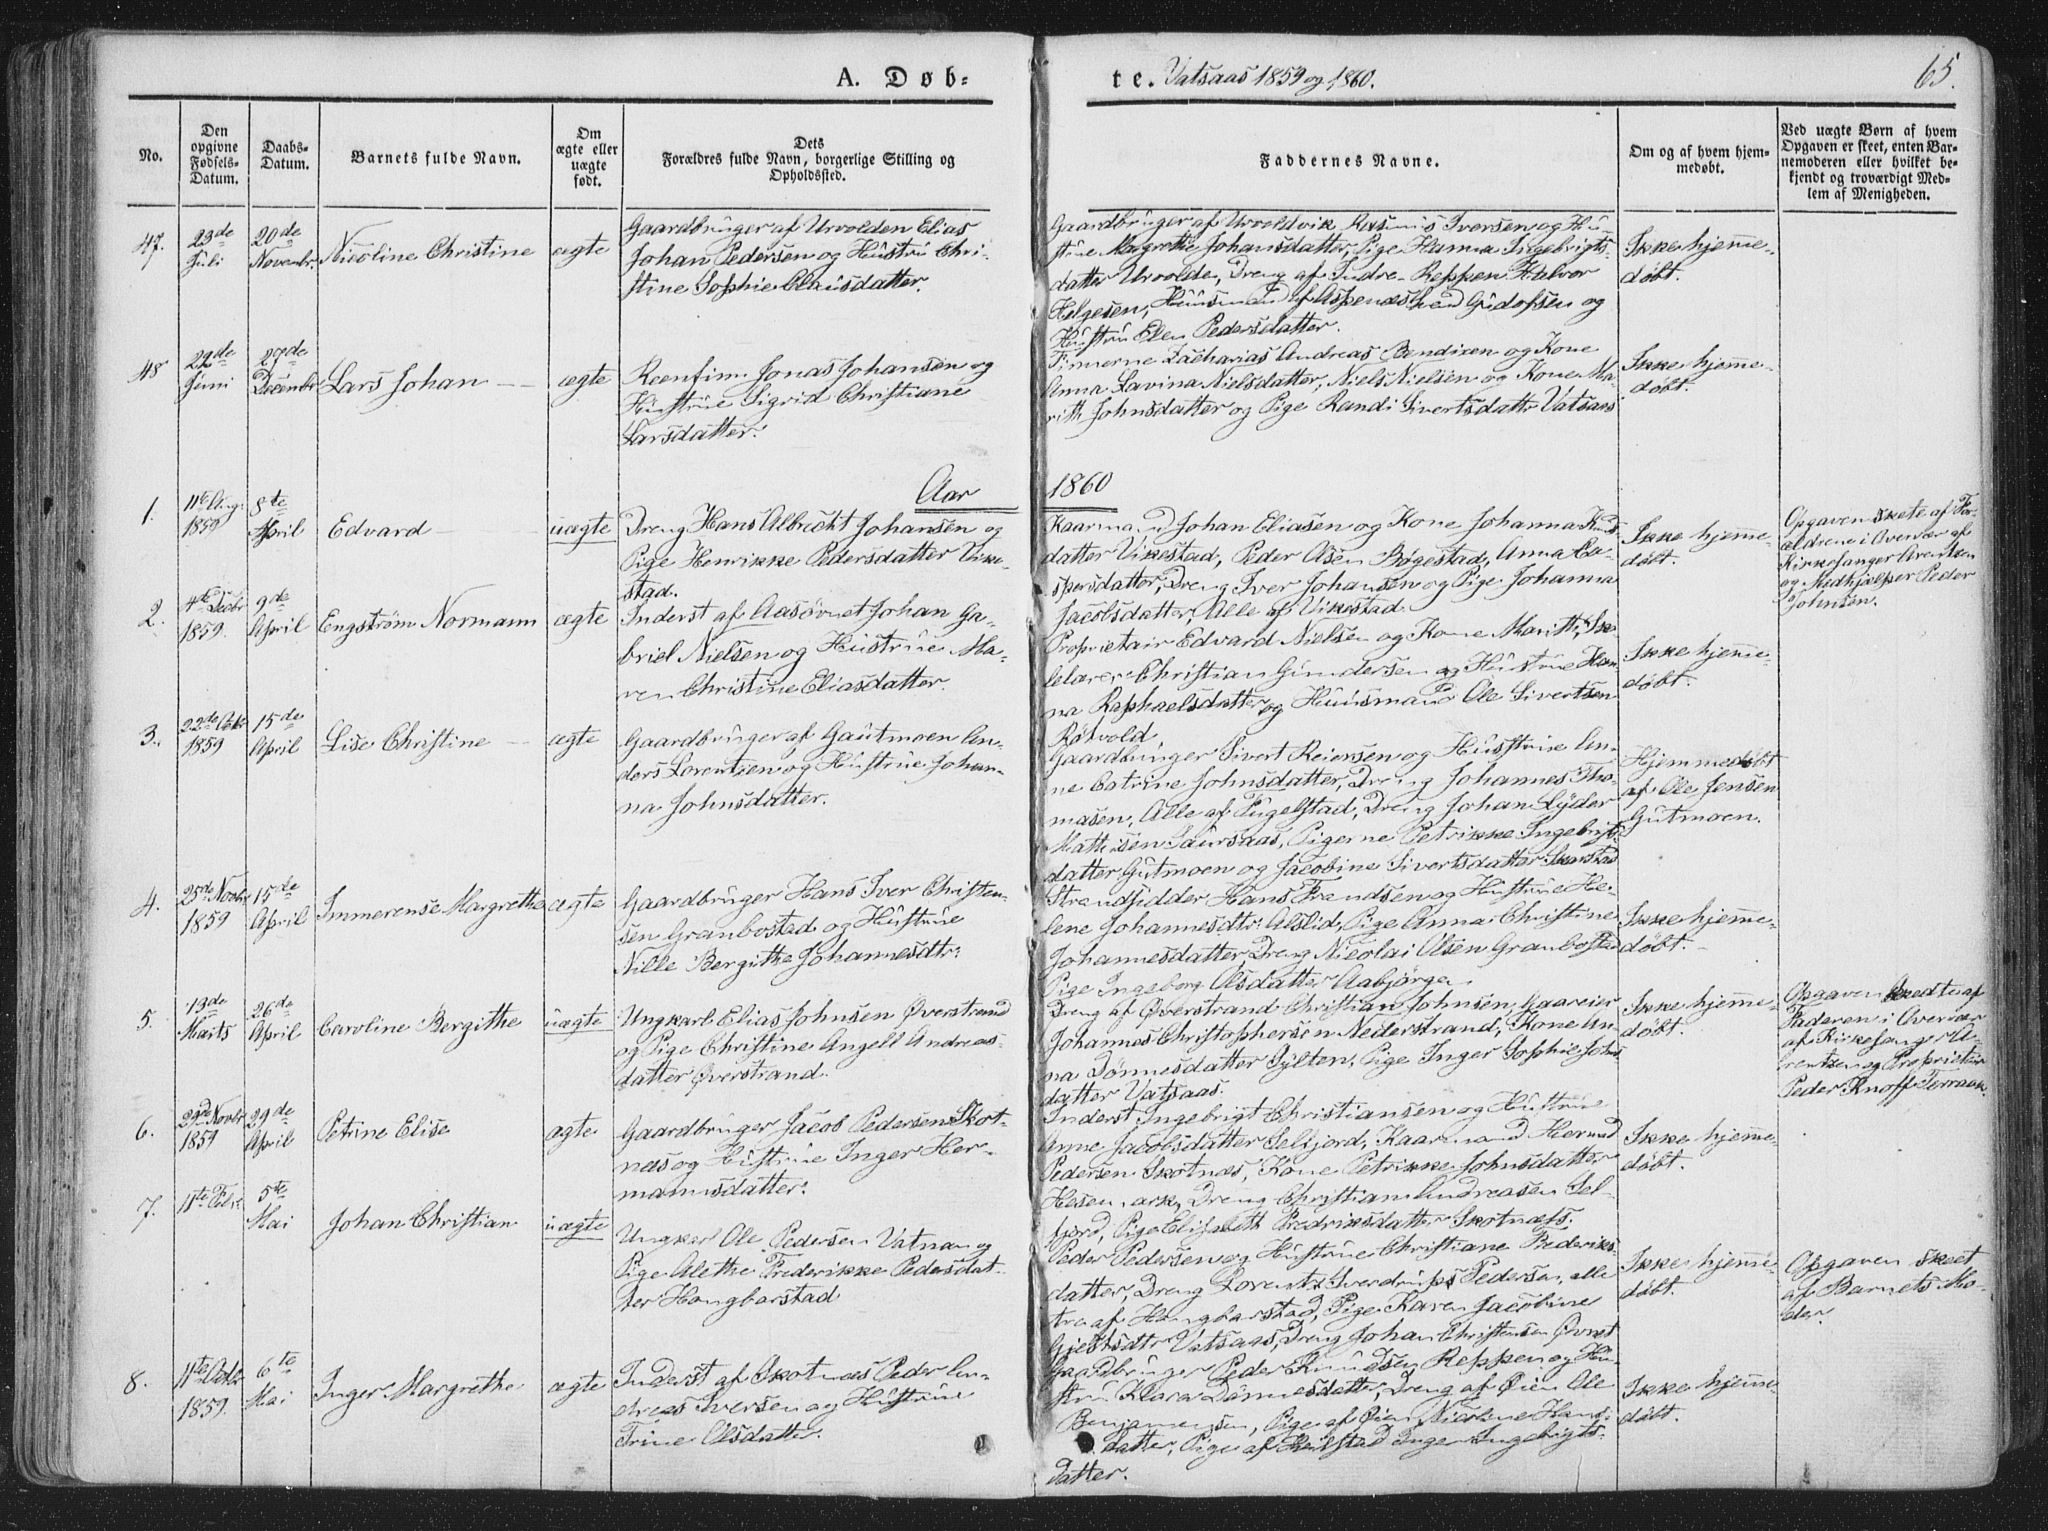 A. Døb-
te. Vatsaas 1859 og 1860.
65.
No.
Den opgivne Fødsels-Datum.
Daabs-Datum.
Barnets fulde Navn.
Om ægte eller uægte født.
Dets Forældres fulde Navn, borgerlige Stilling og Opholdssted.
Faddernes Navne.
Om og af hvem hjem-
medøbt.
Ved uægte Børn af hvem
Opgaven er skeet, enten Bar-
nemoderen eller hvilket be-
kjendt og troværdigt Med-
lem af Menigheden.
47.
23de Juli
20de Novembr.
Nicoline Christine
ægte
Gaardbruger af Urvolden Elias
Johan Pedersen og Hustru Chri-
stine Sophie Clausdatter.
Gaardbruger af Urvoldvik Rasmus Iversen og Hu-
strue Margrethe Johansdatter, Pige Hanna Ingebrigts-
datter Urvolde, Dreng af Indre Reppen Halvor
Helgesen, Huusmand af Aspenæs
og
Hustru Elen Pedersdatter.
Ikke hjemme-
døbt.
48
29de Juni
27de Decembr
Lars Johan
ægte
Reenfin Jonas Johansen og
Hustrue Sigrid Christiane
Larsdatter.
Finnerne Zacharias Andreas Bendixen og Kone
Anna Lavina Nielsdatter, Niels Nielsen og Kone Ma-
rith Johnsdatter og Pige Randi Sivertsdattr Vatsaas
Ikke hjemme-
døbt.
Aar 1860
1.
11te Aug. 1859
8te April
Edvard
uægte
Dreng Hans Albrecht Johansen og
Pige Henrikke Pedersdatter Vike-
stad.
Kaarmand Johan Eliasen og Kone Johanna Knuds
datter Vikestad, Peder Olsen Bøgestad, Anna Ca-
spersdatter, Dreng Iver Johansen og Pige Johanna
Jacobsdatter, Alle af Vikestad.
Ikke hjemme-
døbt.
Opgaven skete af For-
ældrene i Overvær af
Kirkesanger Arentzen
og Medhjælper Peder
Johnsen.
2.
4de Decbr 1859.
9de April
Engström Normann
ægte
Inderst af Aasørnet Johan Ga-
briel Nielsen og Hustrue Ma-
ren Christine Eliasdatter.
Proprietair Edvard Nielsen og Kone Marith, Sko-
lelærer Christian Gundersen og Hustrue Han
na Raphaelsdatter og Huusmand Ole Sivertsen
Røtvold.
Ikke hjemme-
døbt.
3.
22de Octbr 1859
15de April
Lise Christine
ægte
Gaardbruger af Gautmoen An-
ders Lorentzen og Hustrue Johan-
na Johnsdatter.
Gaardbruger Sivert Reiersen og Hustrue An-
ne Catrine Johnsdatter, Dreng Johannes Tho-
masen, Alle af Fugelstad, Dreng Johan Lyder
Mathisen Saursaas, Pigerne Petrikke Ingebrigts-
datter Gutmoen og Jacobine Sivertsdatter Skarstad
Hjemmedøbt
af Ole Jensen
Gutmoen.
4.
25de Novbr 1859
15de April
Immerense Margrethe
ægte
Gaardbruger Hans Iver Christen-
sen Granbostad og Hustrue
Nille Bergithe Johannesdtr:
Strandsidder Hans Frandsen og Hustrue He-
lene Johannesdtr: Alslid, Pige Anna Christine
Johannesdatter, Dreng Nicolai Olsen Granbostad
Pige Ingeborg Olsdatter Aabjørgen
Ikke hjemme-
døbt.
5.
13de Marts
26de April
Caroline Bergithe
uægte
Ungkarl Elias Johnsen Øverstrand
og Pige Christine Angell Andreas-
datter Øverstrand.
Dreng af Øverstrand Christian Johnsen, Gaareier
Johannes Christophersen Nederstrand, Kone An-
na Dønnesdatter Sylten, Pige Inger Sophie Johns
datter Vatsaas.
Ikke hjemme-
døbt.
Opgaven skedte af
Faderen i Overvær
af Kirkesanger A-
rentsen og Proprietair
Peder Knoff Terraak.
6.
29de Novbr 1859
29de April
Petrine Elise
ægte
Gaardbruger Jacob Pedersen Skot-
næs og Hustrue Inger Her-
manusdatter.
Inderst Ingebrigt Christiansen og Hustrue
Anne Jacobsdatter Selfjord, Kaarmand Hermod
Pedersen Skotnæs, Kone Petrikke Johnsdatter
Heienmark, Dreng Christian Andreasen Sel-
fjord, Pige Elisabeth Fredriksdatter Skotnæss.
Ikke hjemme-
døbt.
7.
11te Febr
5te Mai
Johan Christian
uægte
Ungkar Ole Pedersen Vatnan og
Pige Alethe Frederikke Pedersdat-
ter Hongbarstad
Peder Pedersen og Hustrue Christiane Frederiks-
datter, Dreng Lorents Sverdrups Pedersen, alle
tre af Hongbarstad, Pige Karen Jacobine
Gjertsdtr Vatsaas, Dreng Johan Christensen Øvnet
Ikke hjemme-
døbt.
Opgaven skeet
af Barnets Mo-
der.
8.
11te Octbr 1859.
6te Mai
Inger Margrethe
ægte
Inderst af Skotnæs Peder An-
dreas Iversen og Hustrue
Trine Olsdatter.
Gaardbruger Peder Knudsen Reppen og Hu-
stru Klara Dønnesdatter, Dreng af Øien Ole
Benjaminsen, Pige af Øien Nicoline Hans-
datter, Pige af Heilstad Inger Ingebrigts-
datter.
Ikke hjemme-
døbt.